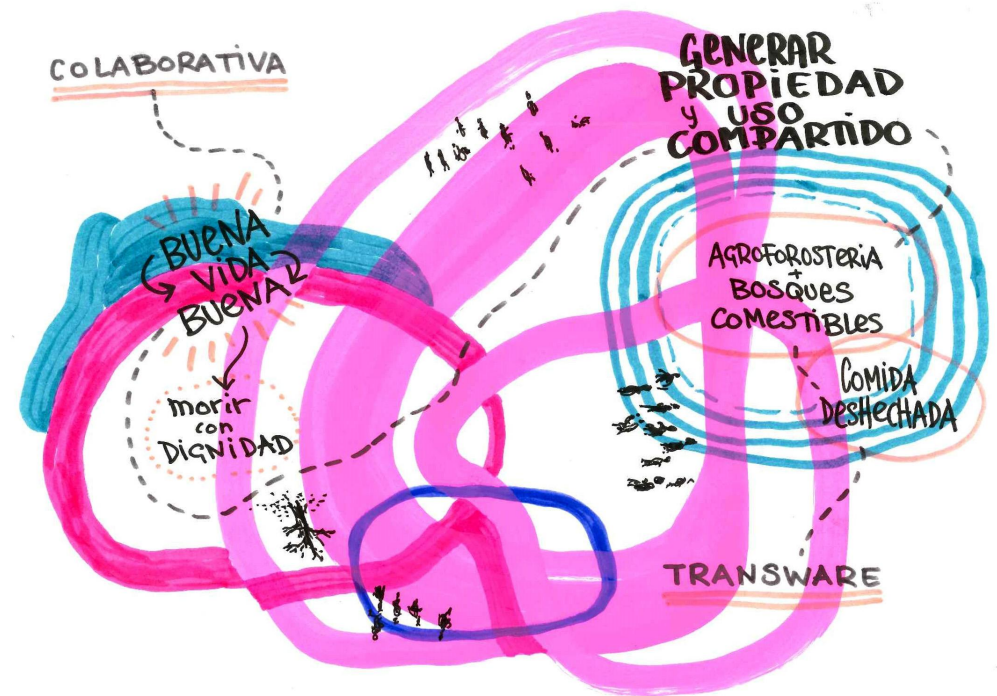 COLABORATIVA
GENERAR
PROPIEDAD
y USO
COMPARTIDO
BUENA
VIDA
BUENA
morir
con
DIGNIDAD
AGROFOROSTERIA
+
BOSQUES
COMESTIBLES
COMIDA
DESHECHADA
TRANSWARE